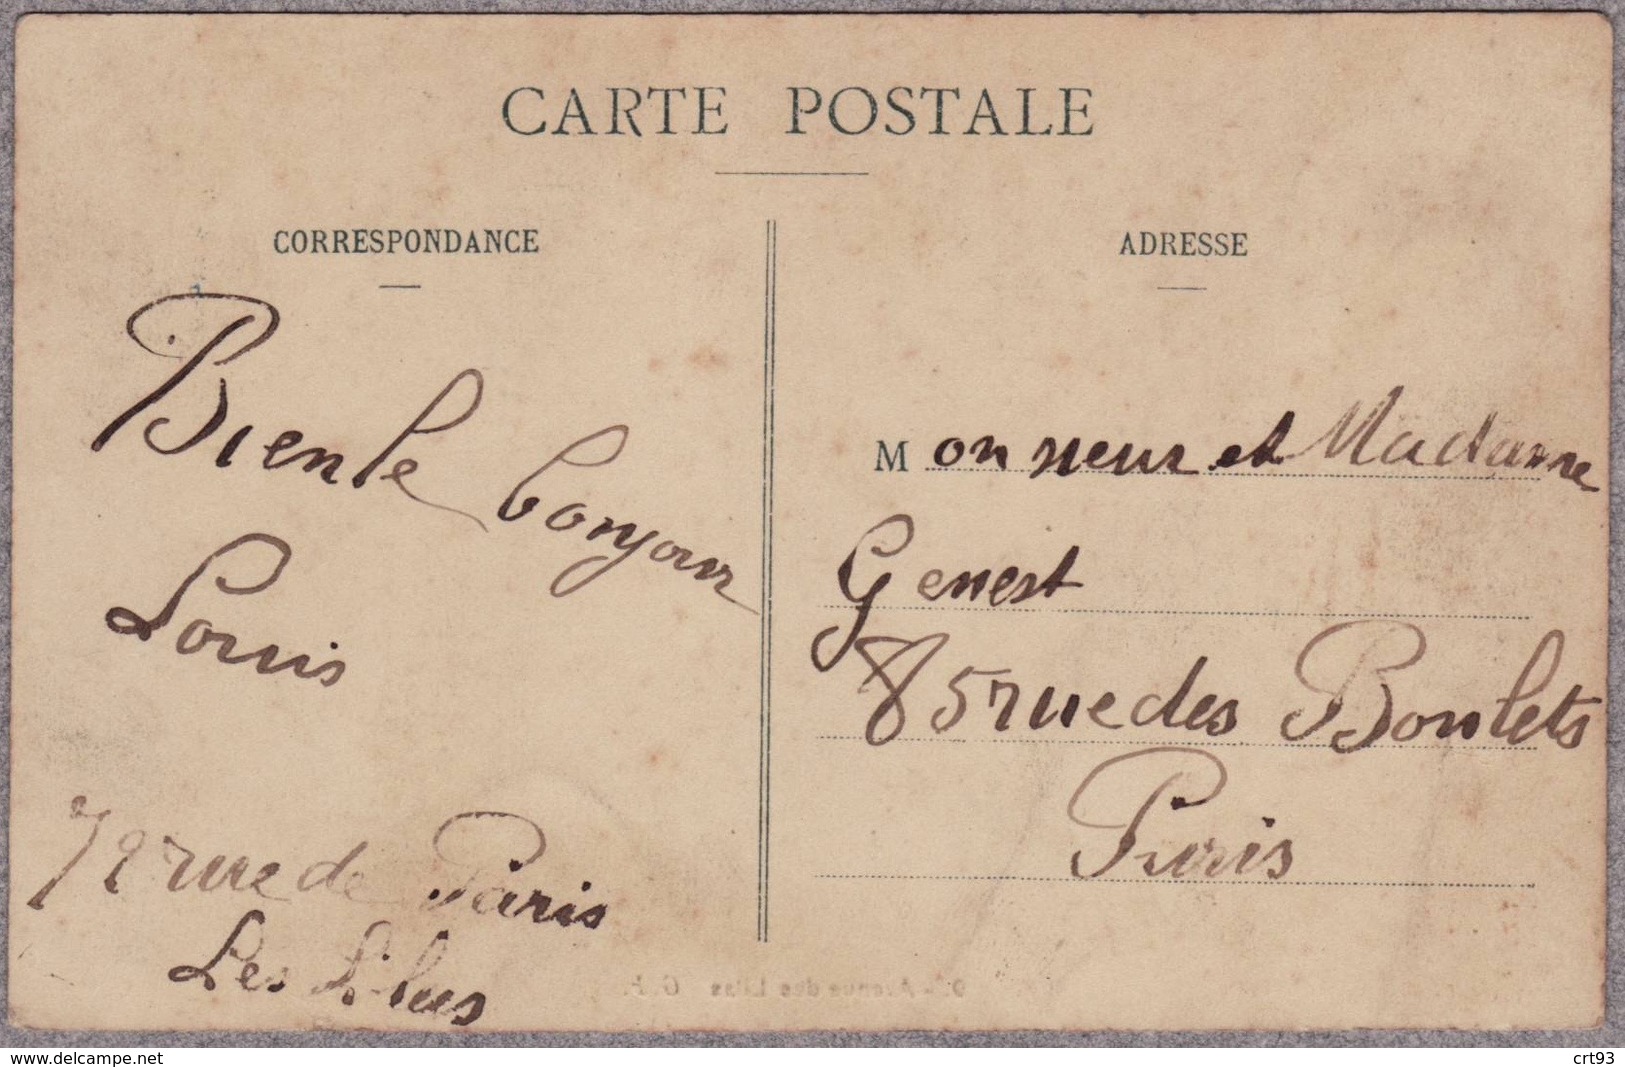 CARTE POSTALE
CORRESPONDANCE
Bien le bonjour
Louis
72 rue de Paris
Les Lilas
ADRESSE
Monsieur et Madame
Genest
85 rue des Boulets
Paris
Avenue des Lilas
www.delcampe.net
crt93